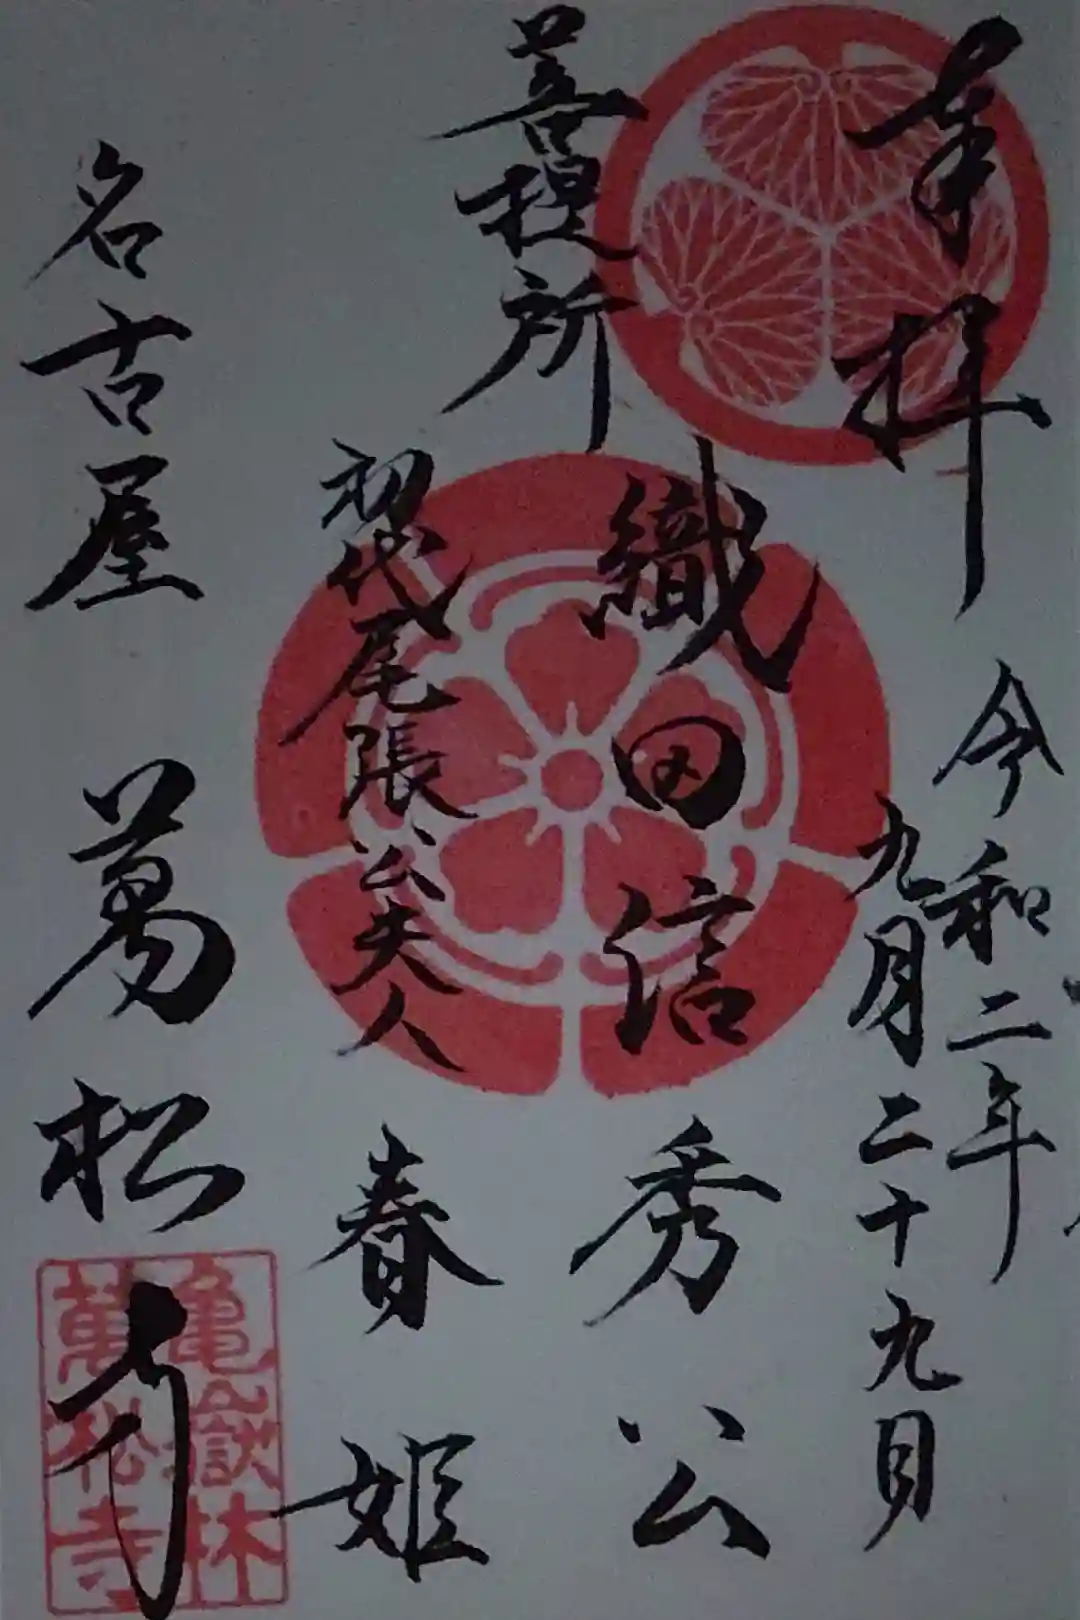 奉拝
令和二年
九月二十九日
菩提所
織田信秀公
初代尾張公夫人
春姫
名古屋
萬松寺
亀嶽林
萬松寺